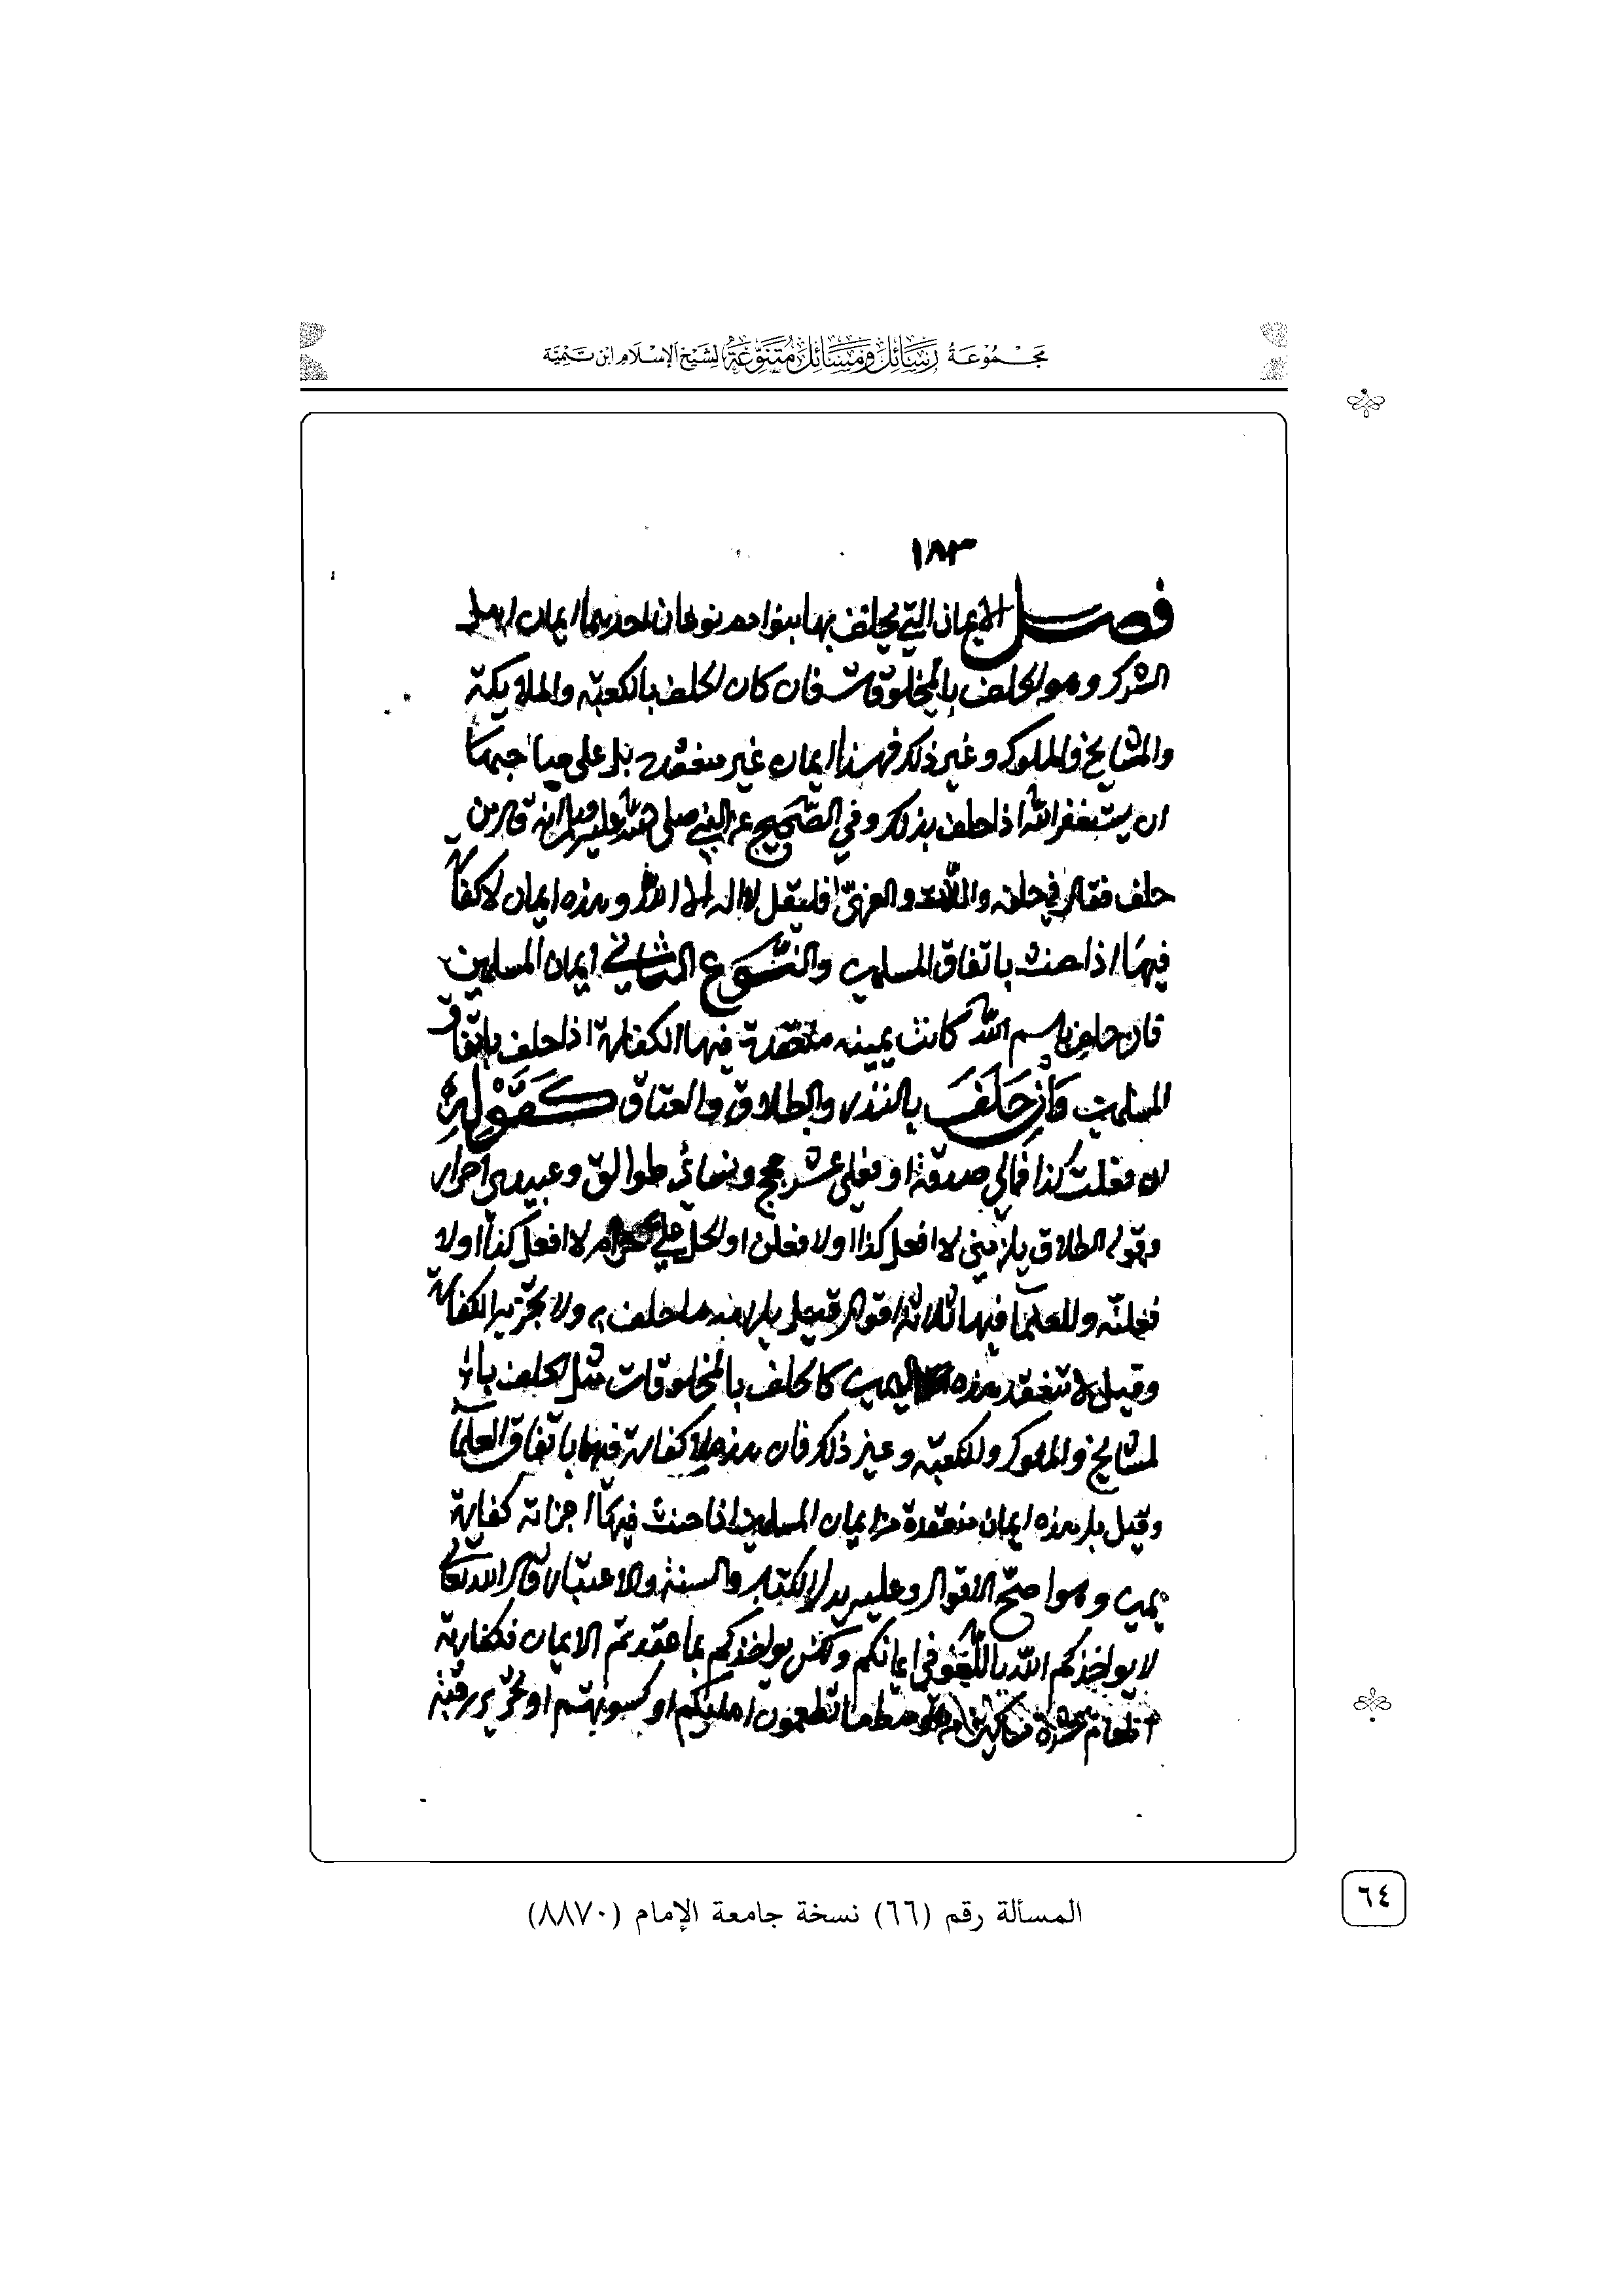 مجموعة رسائل ومسائل متنوعة لشيخ الإسلام ابن تيمية
١٨٣
فصل الأيمان التي يحلف بها بنوا ادم نوعان احديهما ايمان اهل
الشرك وهو الحلف بالمخلوقات فان كان الحلف بالكعبة والملايكة
والمشايخ والملوك وغير ذلك فهذا ايمان غير منعقدة بل على صاحبها
ان يستغفر الله اذا حلف بذلك وفي الصحيح عن النبي صلى الله عليه وسلم انه قال من
حلف فقال في حلفه واللات والعزى فليقل لا اله الا الله وهذه ايمان لا كفا
فيها اذا حنث باتفاق المسلمين والنوع الثاني ايمان المسلمين
فان حلف باسم الله كانت يمينه منعقدة فيها الكفارة اذا حلف باتفاق
المسلمين وان حلف بالنذر والطلاق والعتاق كقوله
ان فعلت كذا فمالي صدقة او فعلي عشر حجج ونسائي طوالق وعبيدي احرار
وقول الطلاق يلزمني لا افعل كذا او لافعلن او الحل علي حرام لا افعل كذا او لا
فعلنه وللعلما فيها ثلاثة اقوال قيل يلزمه ما حلف به ولا تجزيه الكفارة
وقيل لا تنعقد هذه اليمين كالحلف بالمخلوقات مثل الحلف با
لمشايخ والملوك والكعبة وغير ذلك فان هذه لا كفارة فيها باتفاق العلما
وقيل بل هذه ايمان منعقدة من ايمان المسلمين اذا حنث فيها اجزاته كفارة
يمين وهو اصح الاقوال وعليه يدل الكتاب والسنة والاعتبار قال الله تعالى
لا يواخذكم الله باللغو في ايمانكم ولكن يواخذكم بما عقدتم الايمان فكفارته
اطعام عشرة مساكين من اوسط ما تطعمون اهليكم او كسوتهم او تحرير رقبة
المسألة رقم (٦٦) نسخة جامعة الإمام (٨٨٧٠)
٦٤